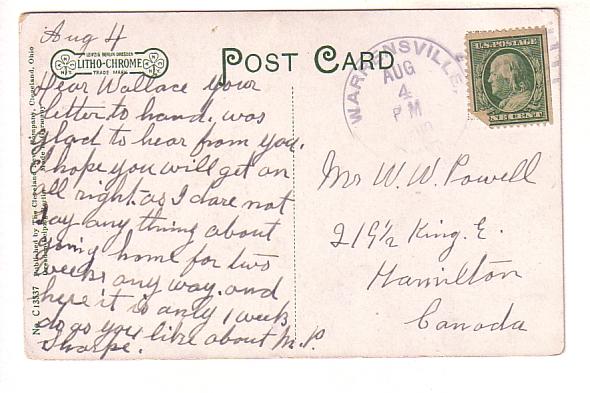 Aug 4
LEIPZIG BERLIN DRESDEN
LITHO-CHROME
TRADE MARK
POST CARD
WARRENSVILLE,
AUG
4
PM
U.S. POSTAGE
ONE CENT
Dear Wallace your
letter to hand. was
glad to hear from you.
hope you will get on
all right. as I dare not
say any thing about
going home for two
weeks any way. and
here it is only 1 week
do as you like about M. P.
Sharpe.
Mr W. W. Powell
219½ King. E.
Hamilton
Canada
No. C 13537 Published by The Cleveland News Company, Cleveland, Ohio